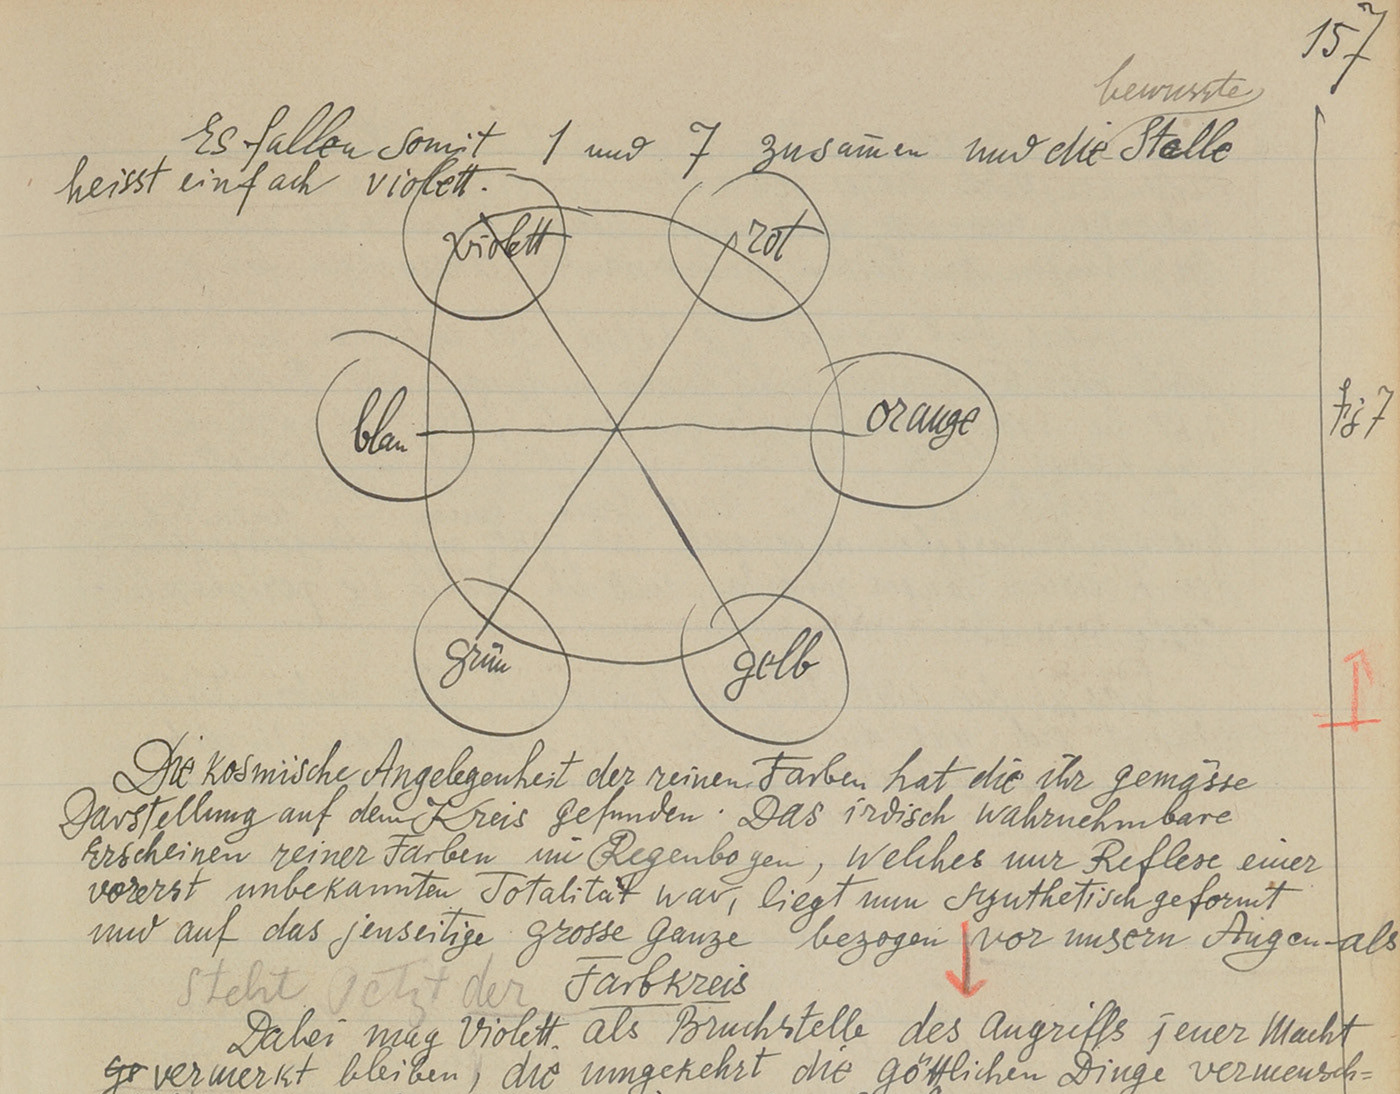 157
bewusste
Es fallen somit 1 und 7 zusam̄en und die Stelle
heisst einfach violett.
violett
rot
blau
orange
fig 7
grün
gelb
Die kosmische Angelegenheit der reinen Farben hat die ihr gemässe
Darstellung auf dem Kreis gefunden. Das irdisch wahrnehmbare
Erscheinen reiner Farben im Regenbogen, welches nur Reflexe einer
vorerst unbekannten Totalität war, liegt nun synthetisch geformt
und auf das jenseitige grosse Ganze bezogen vor unsern Augen als
steht jetzt der Farbkreis
Dabei mag Violett als Bruchstelle des Angriffs jener Macht
ge vermerkt bleiben, die umgekehrt die göttlichen Dinge vermensch=